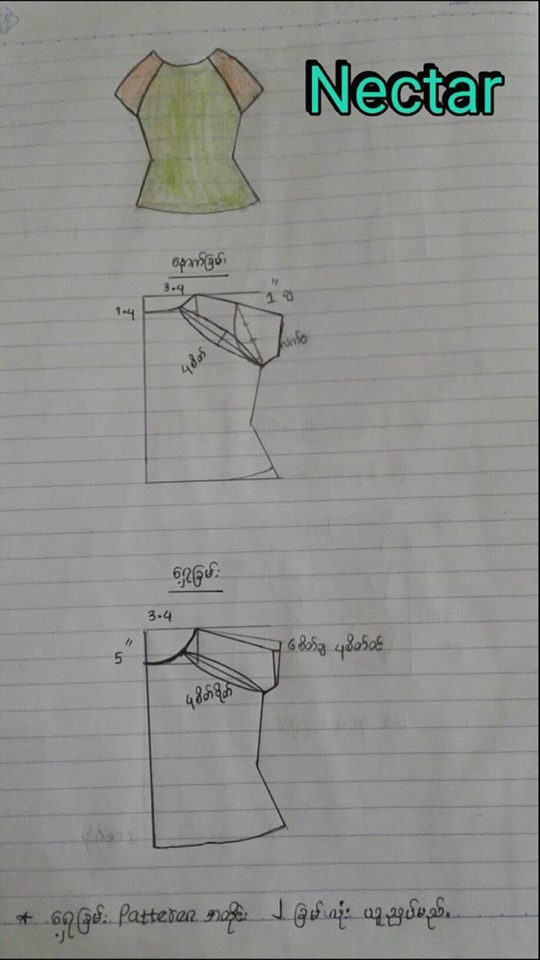 Nectar
နောက်ခြမ်း
3.4
1" ချ
1.4
လက်ဝ
၄စိတ်
ရှေ့ခြမ်း
3.4
5"
၆စိတ်ချ ၄စိတ်ဝင်
၄စိတ်ခိုက်
* ရှေ့ခြမ်း Patteren အတိုင်း ၂ ခြမ်းလုံး ယူညှပ်မည်.